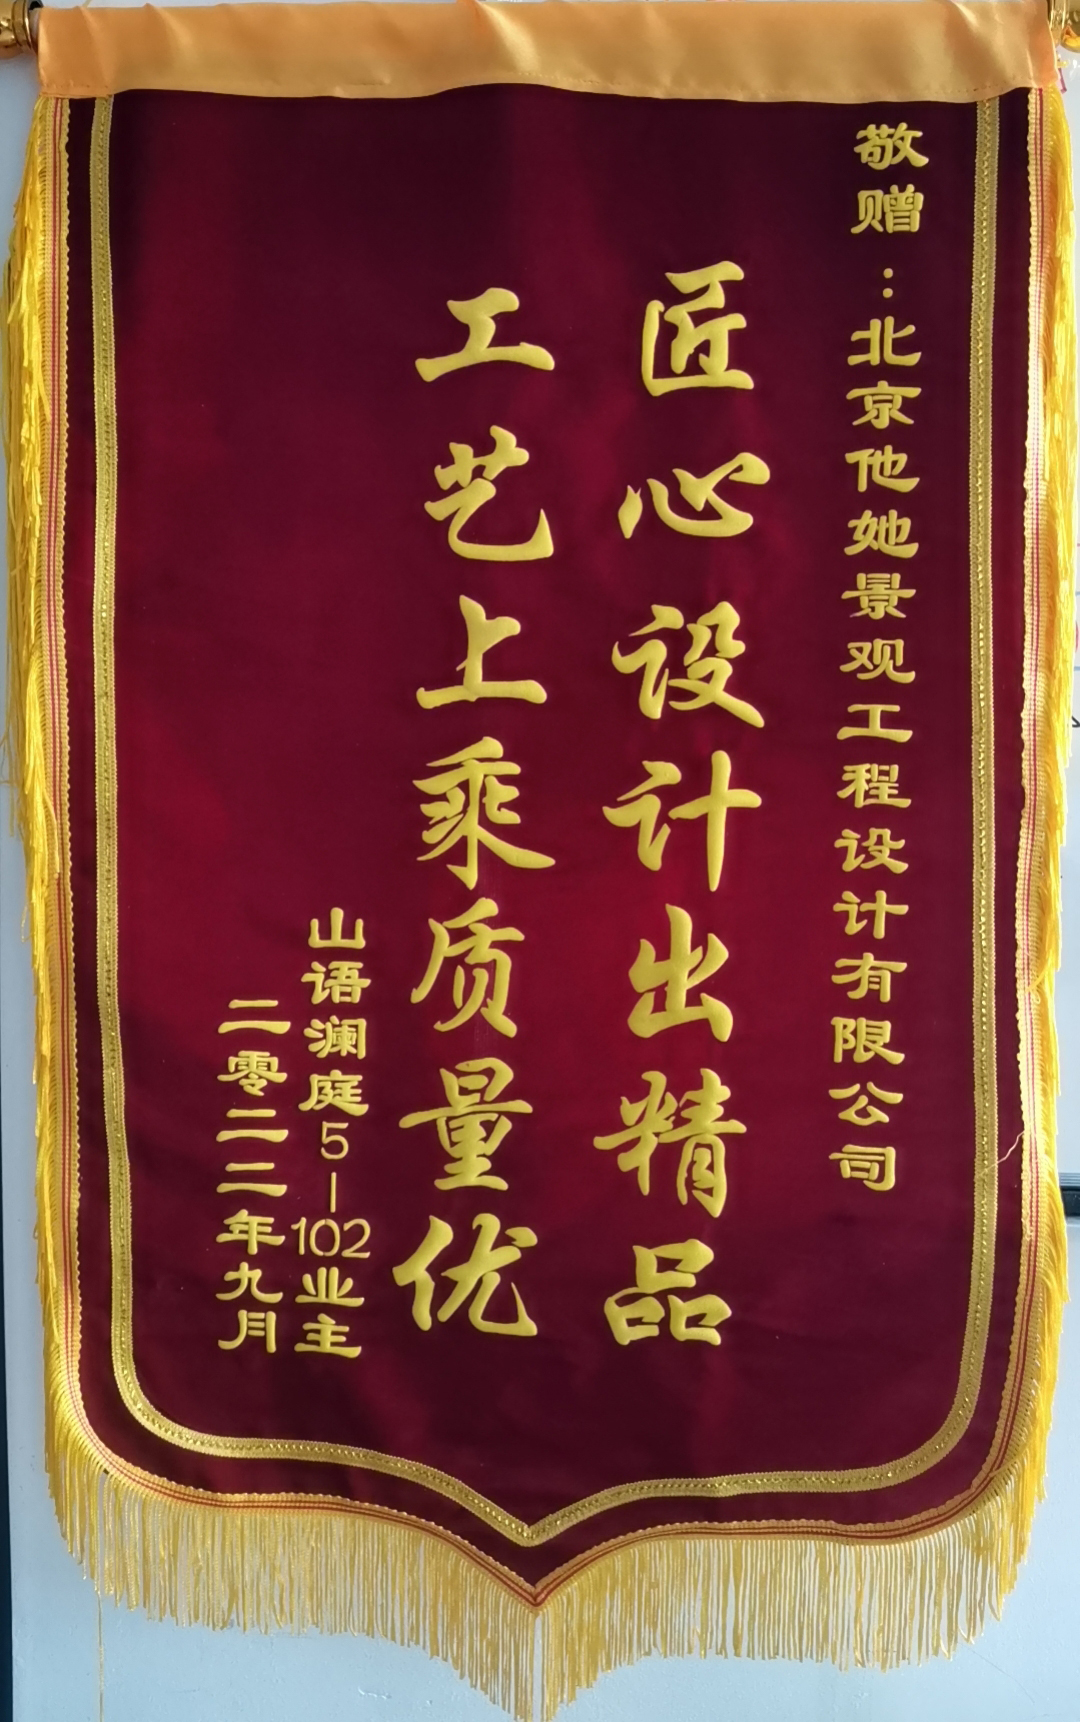 敬赠：北京他她景观工程设计有限公司
匠心设计出精品
工艺上乘质量优
山语澜庭5-102业主
二零二二年九月